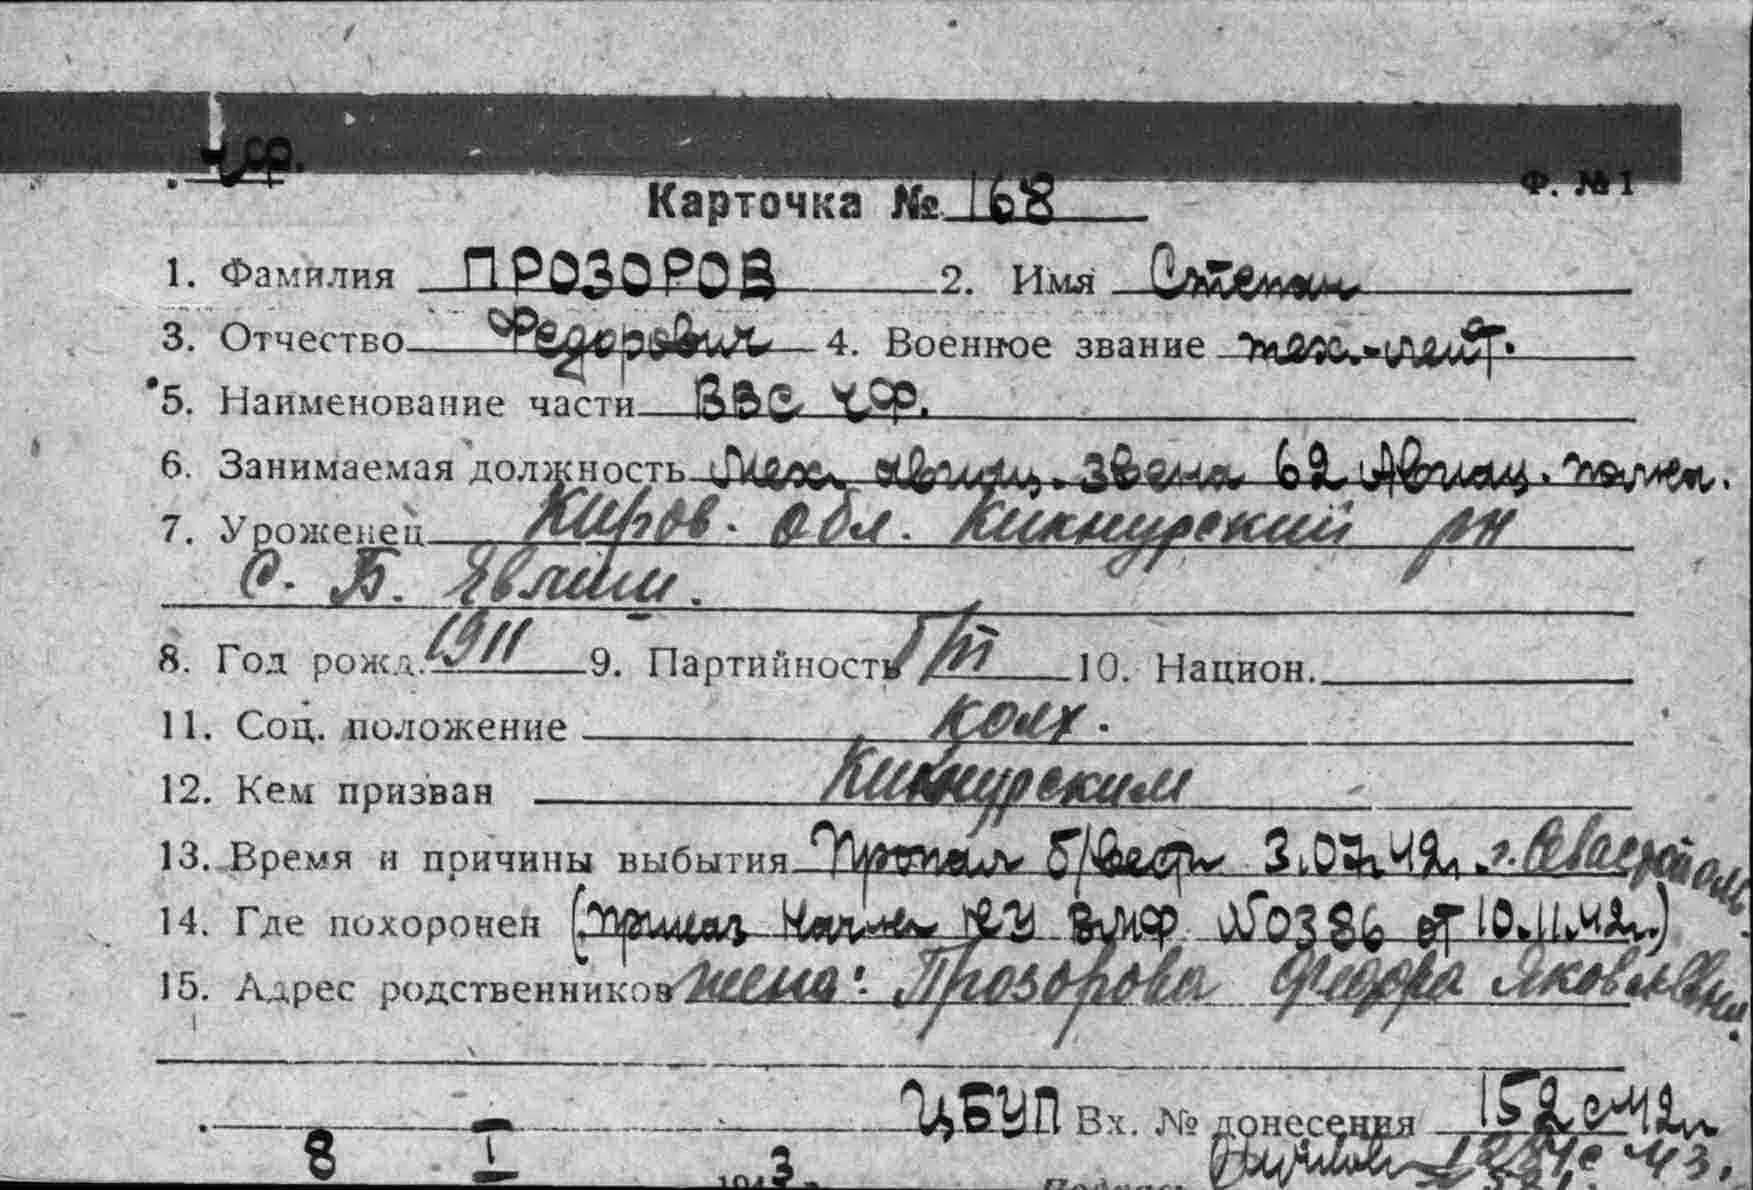 ЧФ.
Ф. №1
Карточка № 168
1. Фамилия ПРОЗОРОВ 2. Имя Степан
3. Отчество Федорович 4. Военное звание тех.-лейт.
5. Наименование части ВВС ЧФ.
6. Занимаемая должность Мех. авиац. звена 62 Авиац. полка.
7. Уроженец Киров. обл. Кикнурский рн
С. Б. Явлиши.
8. Год рожд. 1911 9. Партийность б/п 10. Национ.
11. Соц. положение колх.
12. Кем призван Кикнурским
13. Время и причины выбытия Пропал б/вести 3.07.42г. г. Севастополь
14. Где похоронен (приказ Нач-ка КУ ВМФ №0386 от 10.11.42г.)
15. Адрес родственников жена: Прозорова Федора Яковлевна.
ЦБУП Вх. № донесения 152с 42г
8 I 1943 г. Подпись